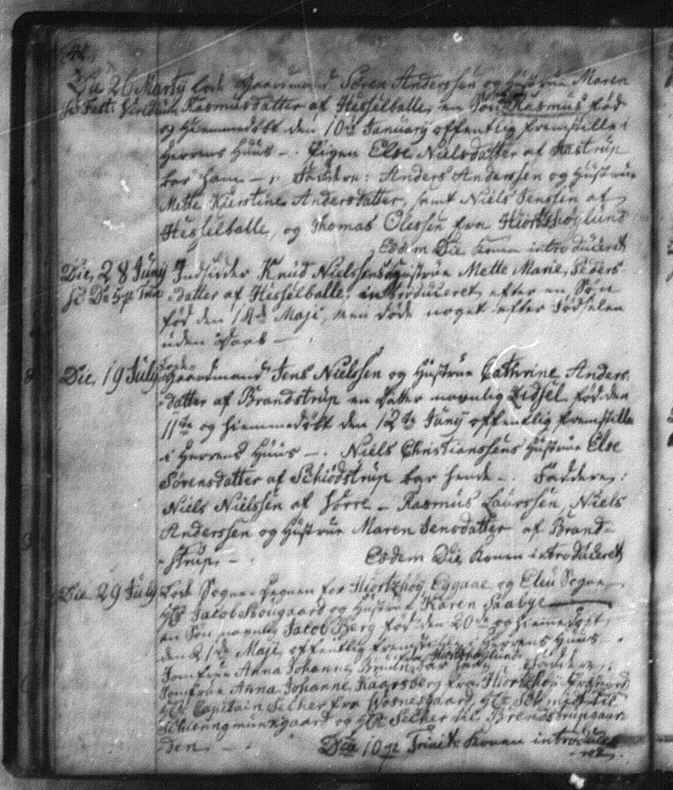 Die 26 Marty lod Gaardmand Søren Andersen og Hustrue Maren
Rasmusdatter af Hesselballe en Søn Rasmus fød
og hiemmedøbt den 10de January offentlig fremstille i
Herrens Huus -. Pigen Else Nielsdatter af Kastrup
bar ham -. Faddere: Anders Andersen og Hustrue
Mette Kierstine Andersdatter, samt Niels Jenssen af
Hesselballe, og Thomas Olessen fra Hiortshøglund
Eodem Die Konen introduceret
Die, 28 Juny Indsidder Knud Nielssens Hustrue Mette Marie, Peders-
datter af Hesselballe, introduceret efter en Søn
fød den 14de Maji, men døde noget efter Fødselen
uden Daab -.
Die, 19 July lod Gaardmand Jens Nielssen og Hustrue Cathrine Anders-
datter af Brandstrup en Datter navnlig Zidsel fød den
11te og hiemmedøbt den 12te Juny offentlig fremstille
i Herrens Huus -. Niels Christianssens Hustrue Else
Sørensdatter af Schiødstrup bar hende -. Faddere:
Niels Nielssen af Hørre - Rasmus Laurssen, Niels
Anderssen og Hustrue Maren Jensdatter af Brand-
strup -. Eodem Die Konen introduceret
Die 29 July Lod Sogne-Degnen for Hiortshøg Eggaae og Eleu Sogne
Hr Jacob Skougaard og Hustrue Karen Saabye
en Søn navnlig Jacob Berg fød den 20de og hiemmedøbt
den 21de Maji, offentlig fremstille i Herrens Huus -.
Jomfrue Anna Johanne bar ham -. Faddere:
Jomfrue Anna Johanne Kaarsberg fra Hiortshøi
Hr Capitain Selker fra Wosnesgaard, Hr
og Hr Selker til Brendstrupgaar-
den -. Die 10 p Trinit: Konen introduce-
ret.